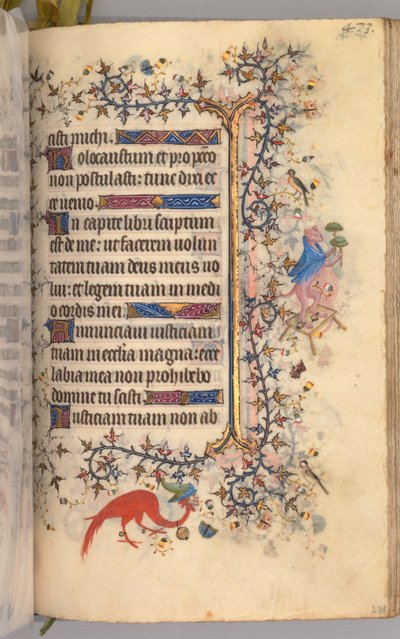 423.
cisti michi.
Holocaustum et pro pccō
non postulasti: tunc dixi ec
ce uenio.
In capite libri scriptum
est de me: ut facerem uolun
tatem tuam deus meus uo
lui: et legem tuam in medi
o cordis mei.
Annunciaui iusticiam
tuam in ecclīa magna: ecce
labia mea non prohibebo
domine tu scisti.
Iusticiam tuam non ab